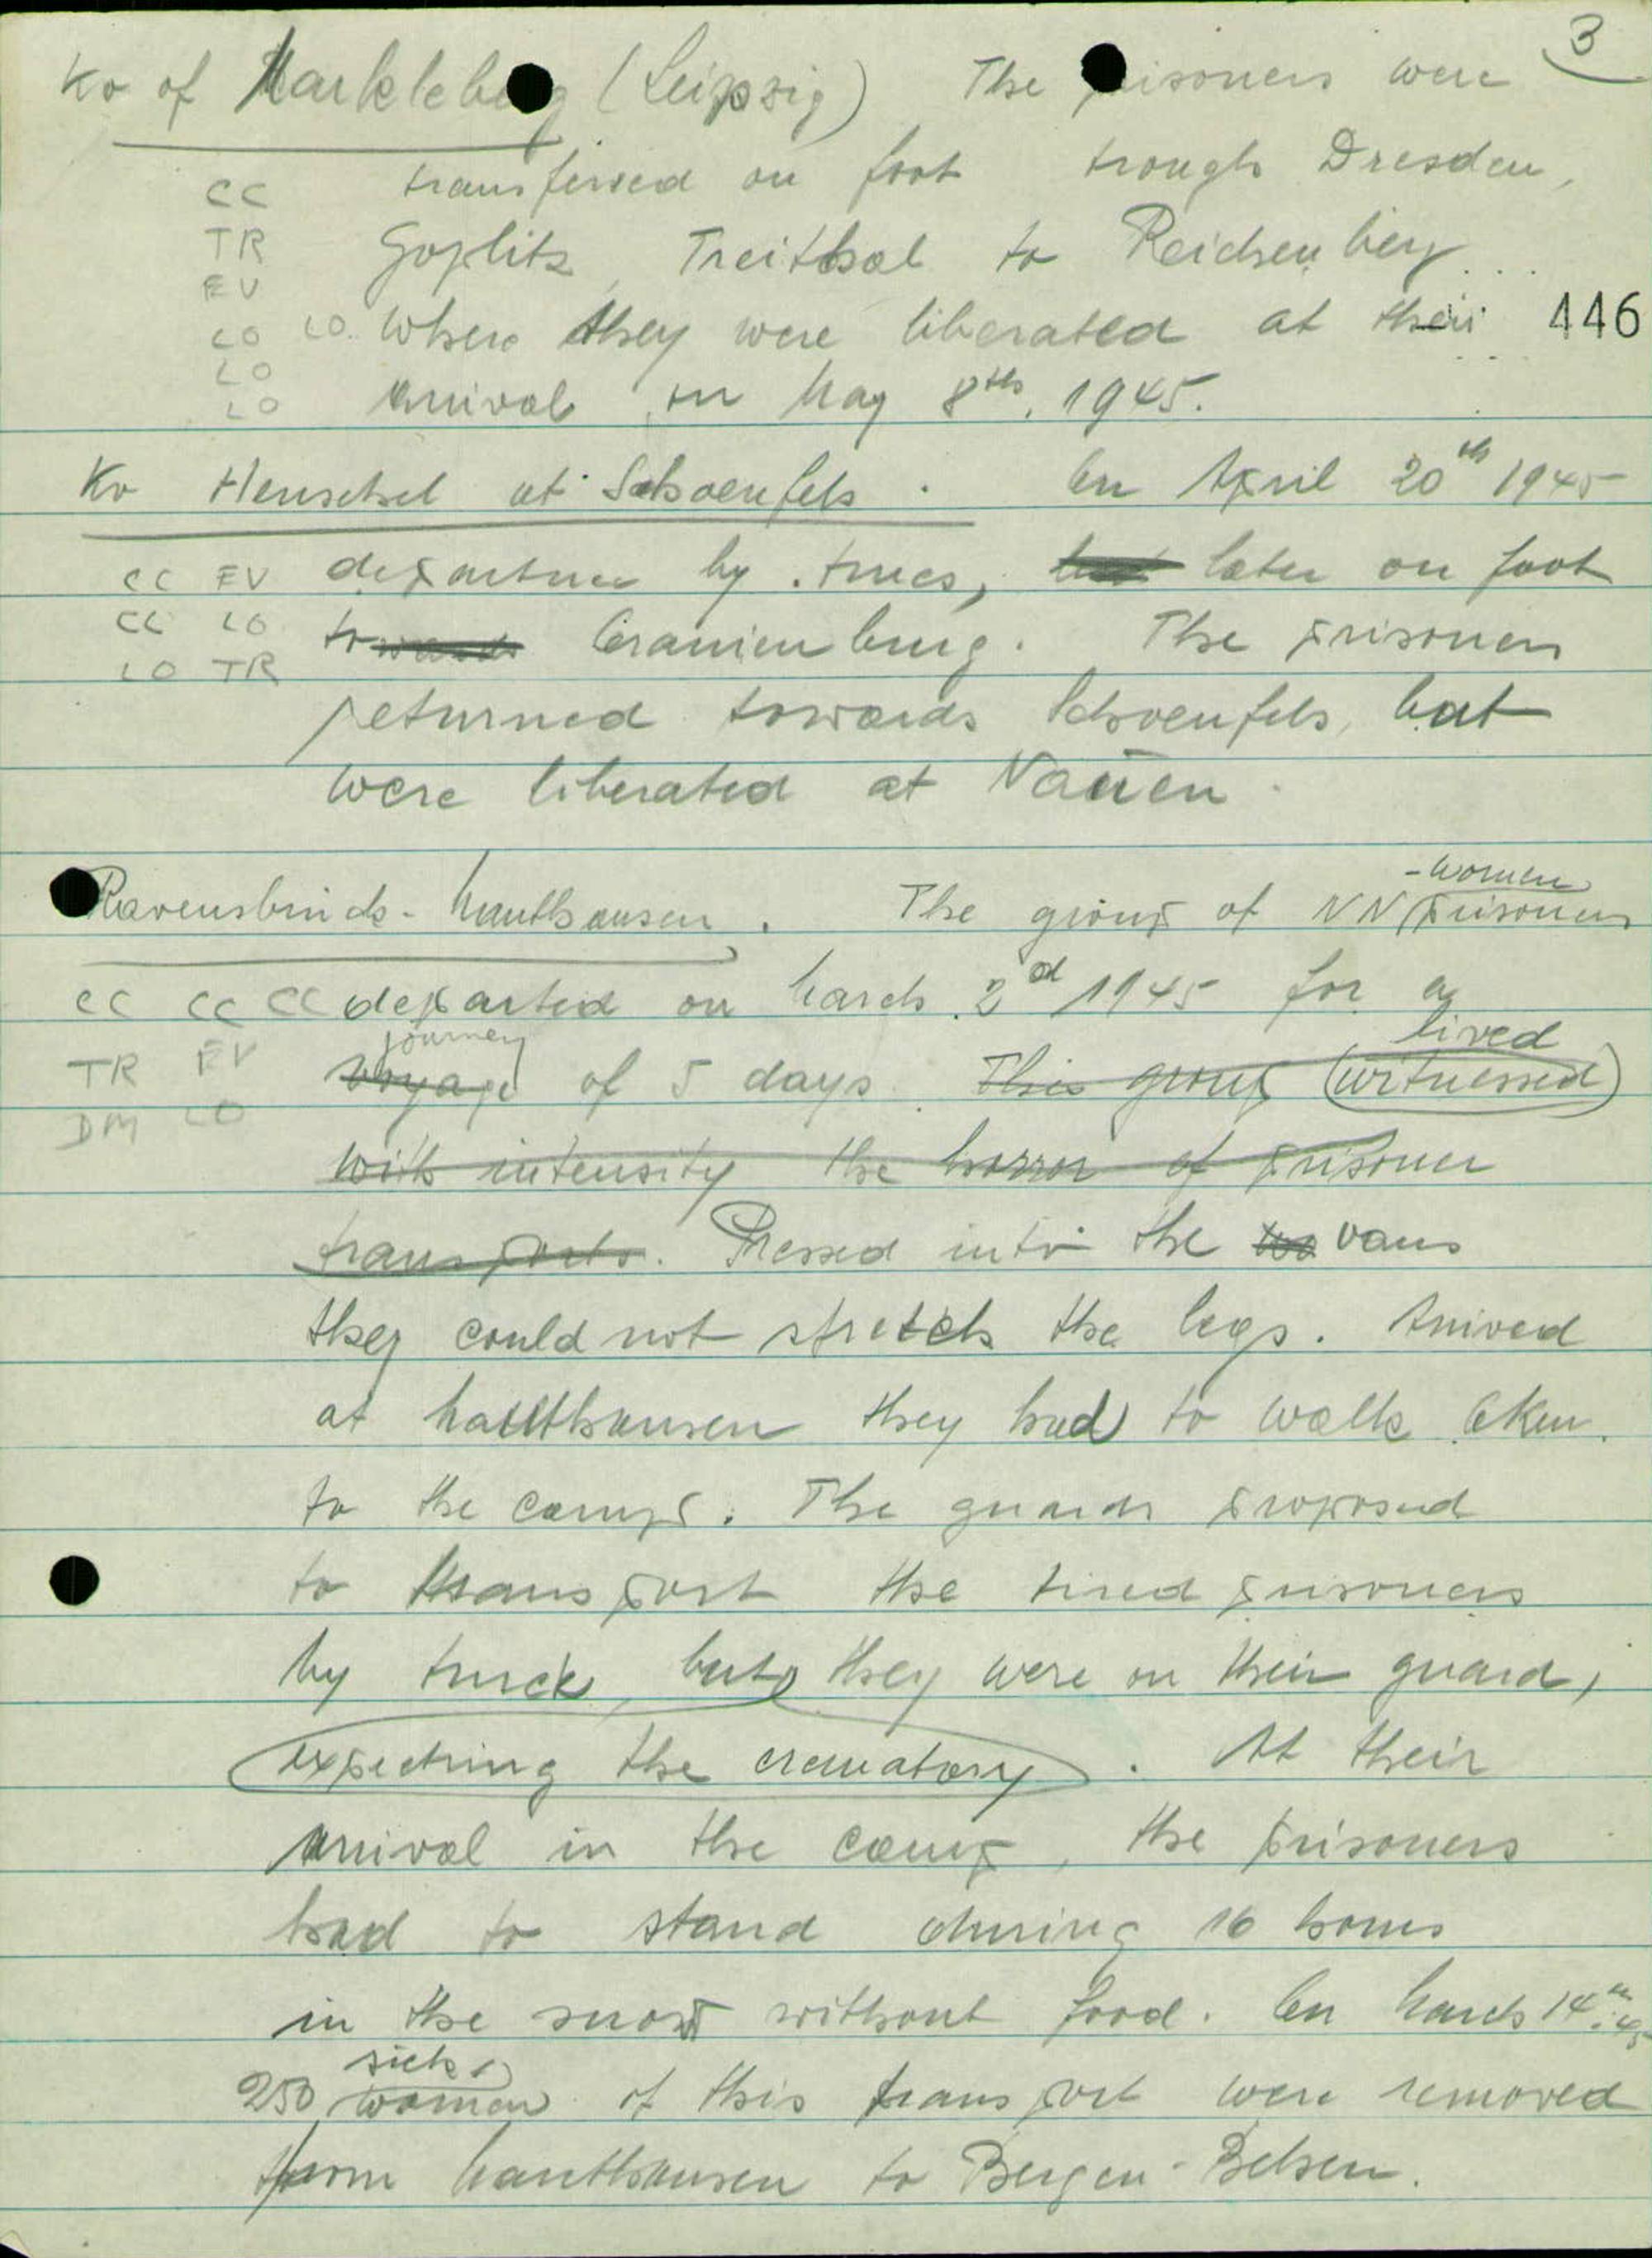 3
Ko of Markleberg (Leipzig) The prisoners were
CC transferred on foot trough Dresden,
TR Goplitz, Treithal to Reichenberg ...
EV
LO LO. where they were liberated at their 446
LO
LO arrival on May 8th, 1945.
Ko Henschel at Schoenfels. On April 20th 1945
CC EV departure by trucs, later on foot
CC LO towards Oranienburg. The prisoners
LO TR
returned towards Schoenfels, but
were liberated at Nauen.
-women
Ravensbruck-Mauthausen. The group of NN prisoners
CC CC CC departed on March 2nd 1945 for a
journey lived
TR EV voyage of 5 days. This group (witnessed)
DM LO
with intensity the horror of prisoner
transports. Pressed into the vans
they could not stretch the legs. Arrived
at Mauthausen they had to walk 6km.
to the camp. The guards proposed
to transport the tired prisoners
by truck, but they were on their guard,
expecting the crematory. At their
arrival in the camp, the prisoners
had to stand during 16 hours
in the snow without food. On March 14th 45
sick
250 women of this transport were removed
from Mauthausen to Bergen-Belsen.